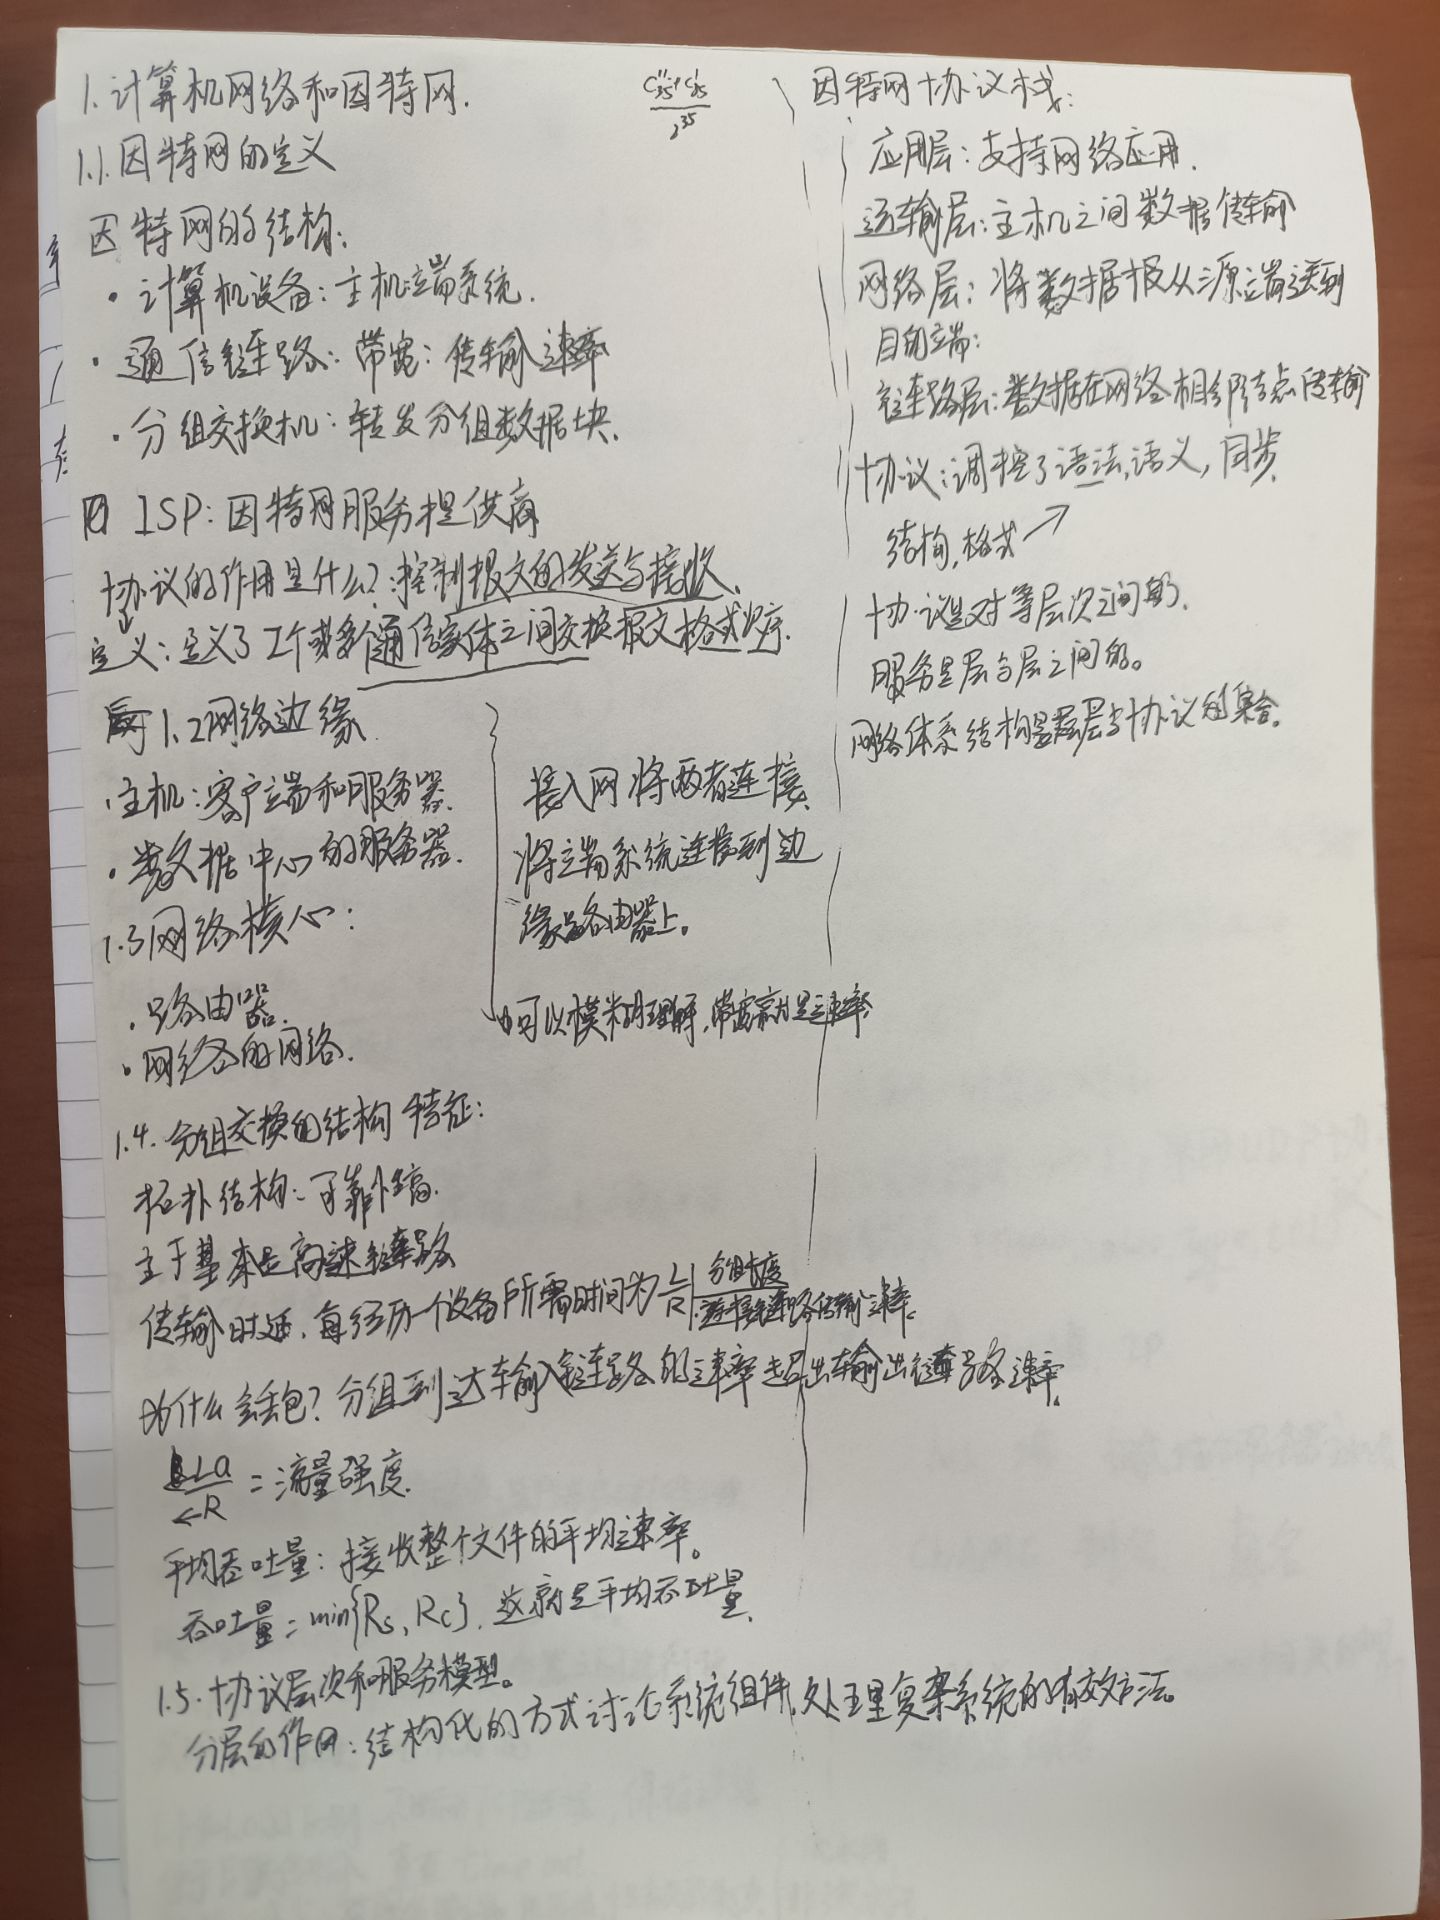 1.计算机网络和因特网.
1.1.因特网的定义
因特网的结构:
·计算机设备:主机端系统.
·通信链路:带宽:传输速率
·分组交换机:转发分组数据块.
ISP:因特网服务提供商
协议的作用是什么?:控制报文的发送与接收.
定义:定义了2个或多个通信实体之间交换报文格式次序.
1.2网络边缘
·主机:客户端和服务器.
·数据中心的服务器.
1.3网络核心:
·路由器.
·网络的网络.
接入网将两者连接.
将端系统连接到边
缘路由器上。
可以模糊理解,带宽就是速率
1.4.分组交换的结构特征:
拓扑结构:可靠性高.
主干基本是高速链路
传输时延,每经历一个设备所需时间为L/R 分组长度/连接链路传输速率.
为什么会丢包?分组到达输入链路的速率超出输出链路速率.
La/R=流量强度.
平均吞吐量:接收整个文件的平均速率。
吞吐量=min{Rs,Rc},这就是平均吞吐量.
1.5.协议层次和服务模型。
分层的作用:结构化的方式讨论系统组件,处理复杂系统的有效方法。
因特网协议栈:
应用层:支持网络应用.
运输层:主机之间数据传输
网络层:将数据报从源端送到
目的端:
链路层:数据在网络相邻结点传输
协议:调控了语法,语义,同步.
结构,格式↗
协议是对等层次之间的.
服务是层与层之间的。
网络体系结构是层与协议的集合。